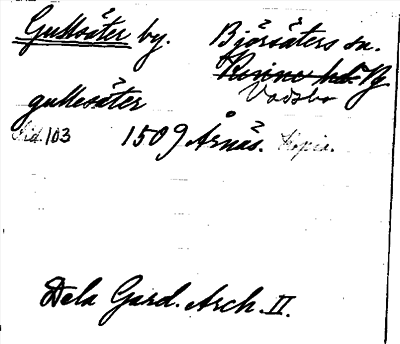 Gullsäter by. Björsäters sn.
Kinne hd. Vg
Vadsbo
gullesäter
Sid. 103 1509 Årnäs. Kopia.
Dela Gard. Arch. II.